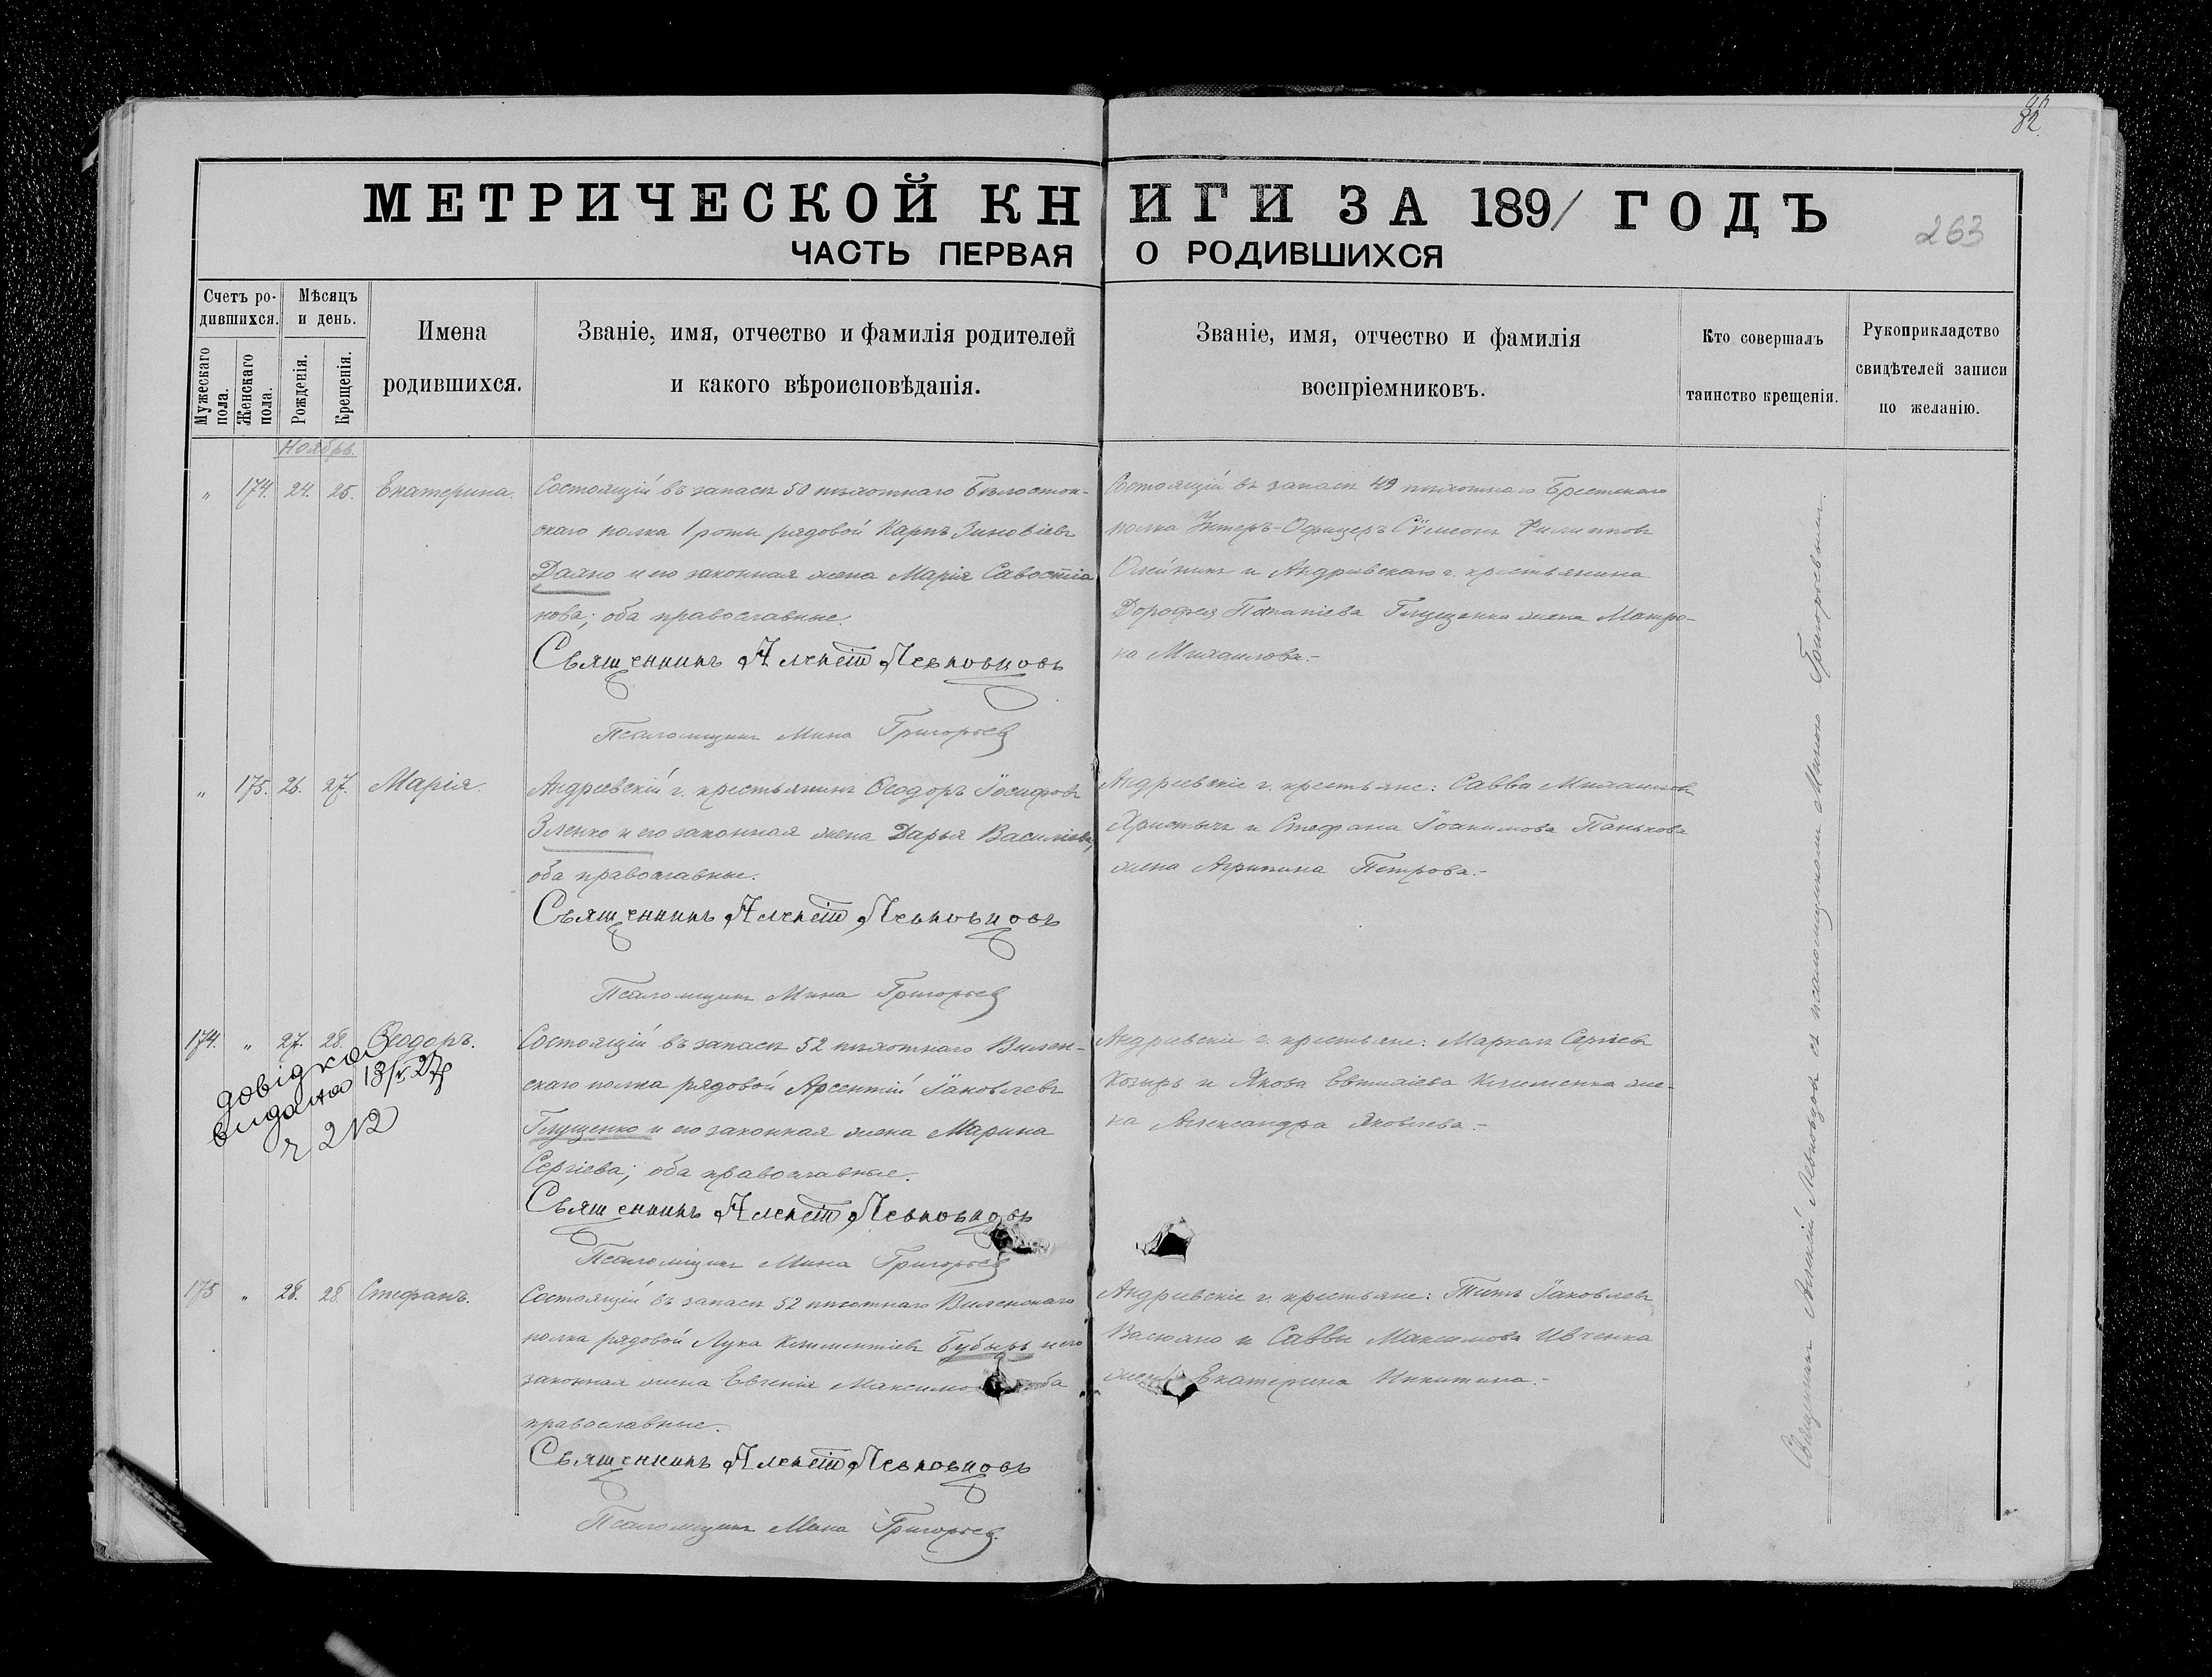 82
МЕТРИЧЕСКОЙ КНИГИ ЗА 1891 ГОДЪ
263
ЧАСТЬ ПЕРВАЯ О РОДИВШИХСЯ
Счетъ ро-
дившихся.
Мужескаго пола.
Женскаго пола.
Мѣсяцъ
и день.
Рожденія.
Крещенія.
Имена
родившихся.
Званіе, имя, отчество и фамилія родителей
и какого вѣроисповѣданія.
Званіе, имя, отчество и фамилія
воспріемниковъ.
Кто совершалъ
таинство крещенія.
Рукоприкладство
свидѣтелей записи
по желанію.
Ноябрь.
" 174. 24. 25. Екатерина.
Состоящій въ запасѣ 50 пѣхотнаго Бѣлосток-
скаго полка 1 роты рядовой Карпъ Зиновіевъ
и его законная жена Марія Савостіа
нова; оба православные.
Священникъ Алексій Левковцовъ
Псаломщикъ Мина Григорьев
Состоящій въ запасѣ 49 пѣхотнаго Брестскаго
полка Унтеръ-Офицеръ Сѵмеонъ Филипповъ
Олейникъ и Андреевскаго г. крестьянина
Дорофея Глущенка жена Матро-
на Михаилова.-
" 175. 26. 27. Марія.
Андреевскій г. крестьянинъ Ѳеодоръ Іосифовъ
Зленко и его законная жена Дарья Василіева,
оба православные.
Священникъ Алексій Левковцовъ
Псаломщикъ Мина Григорьев
Андреевскіе г. крестьяне: Савва Михаиловъ
Христычъ и Стефана Іоакимова Панькова
жена Агрипина Петрова.-
174. " 27. 28. Ѳеодоръ.
довідка
видана 13/V 27р
ч 212
Состоящій въ запасѣ 52 пѣхотнаго Вилен-
скаго полка рядовой Арсентій Іаковлевъ
Глущенко и его законная жена Марина
Сергіева; оба православные.
Священникъ Алексій Левковцовъ
Псаломщикъ Мина Григорьев
Андреевскіе г. крестьяне: Маркелъ Сергіевъ
Козырь и Якова Евтихіева Клименка же-
на Александра Яковлева.-
175 " 28. 28. Стефанъ.
Состоящій въ запасѣ 52 пѣхотнаго Виленскаго
полка рядовой Лука Климентіевъ Бубырь и его
законная жена Евгенія
православные.
Священникъ Алексій Левковцовъ
Псаломщикъ Мина Григорьев.
Андреевскіе г. крестьяне: Титъ Іаковлевъ
и Саввы Максимова Ивченка
жена Екатерина Никитина.-
Священникъ Алексій Левковцовъ съ псаломщикомъ Миною Григорьевымъ.